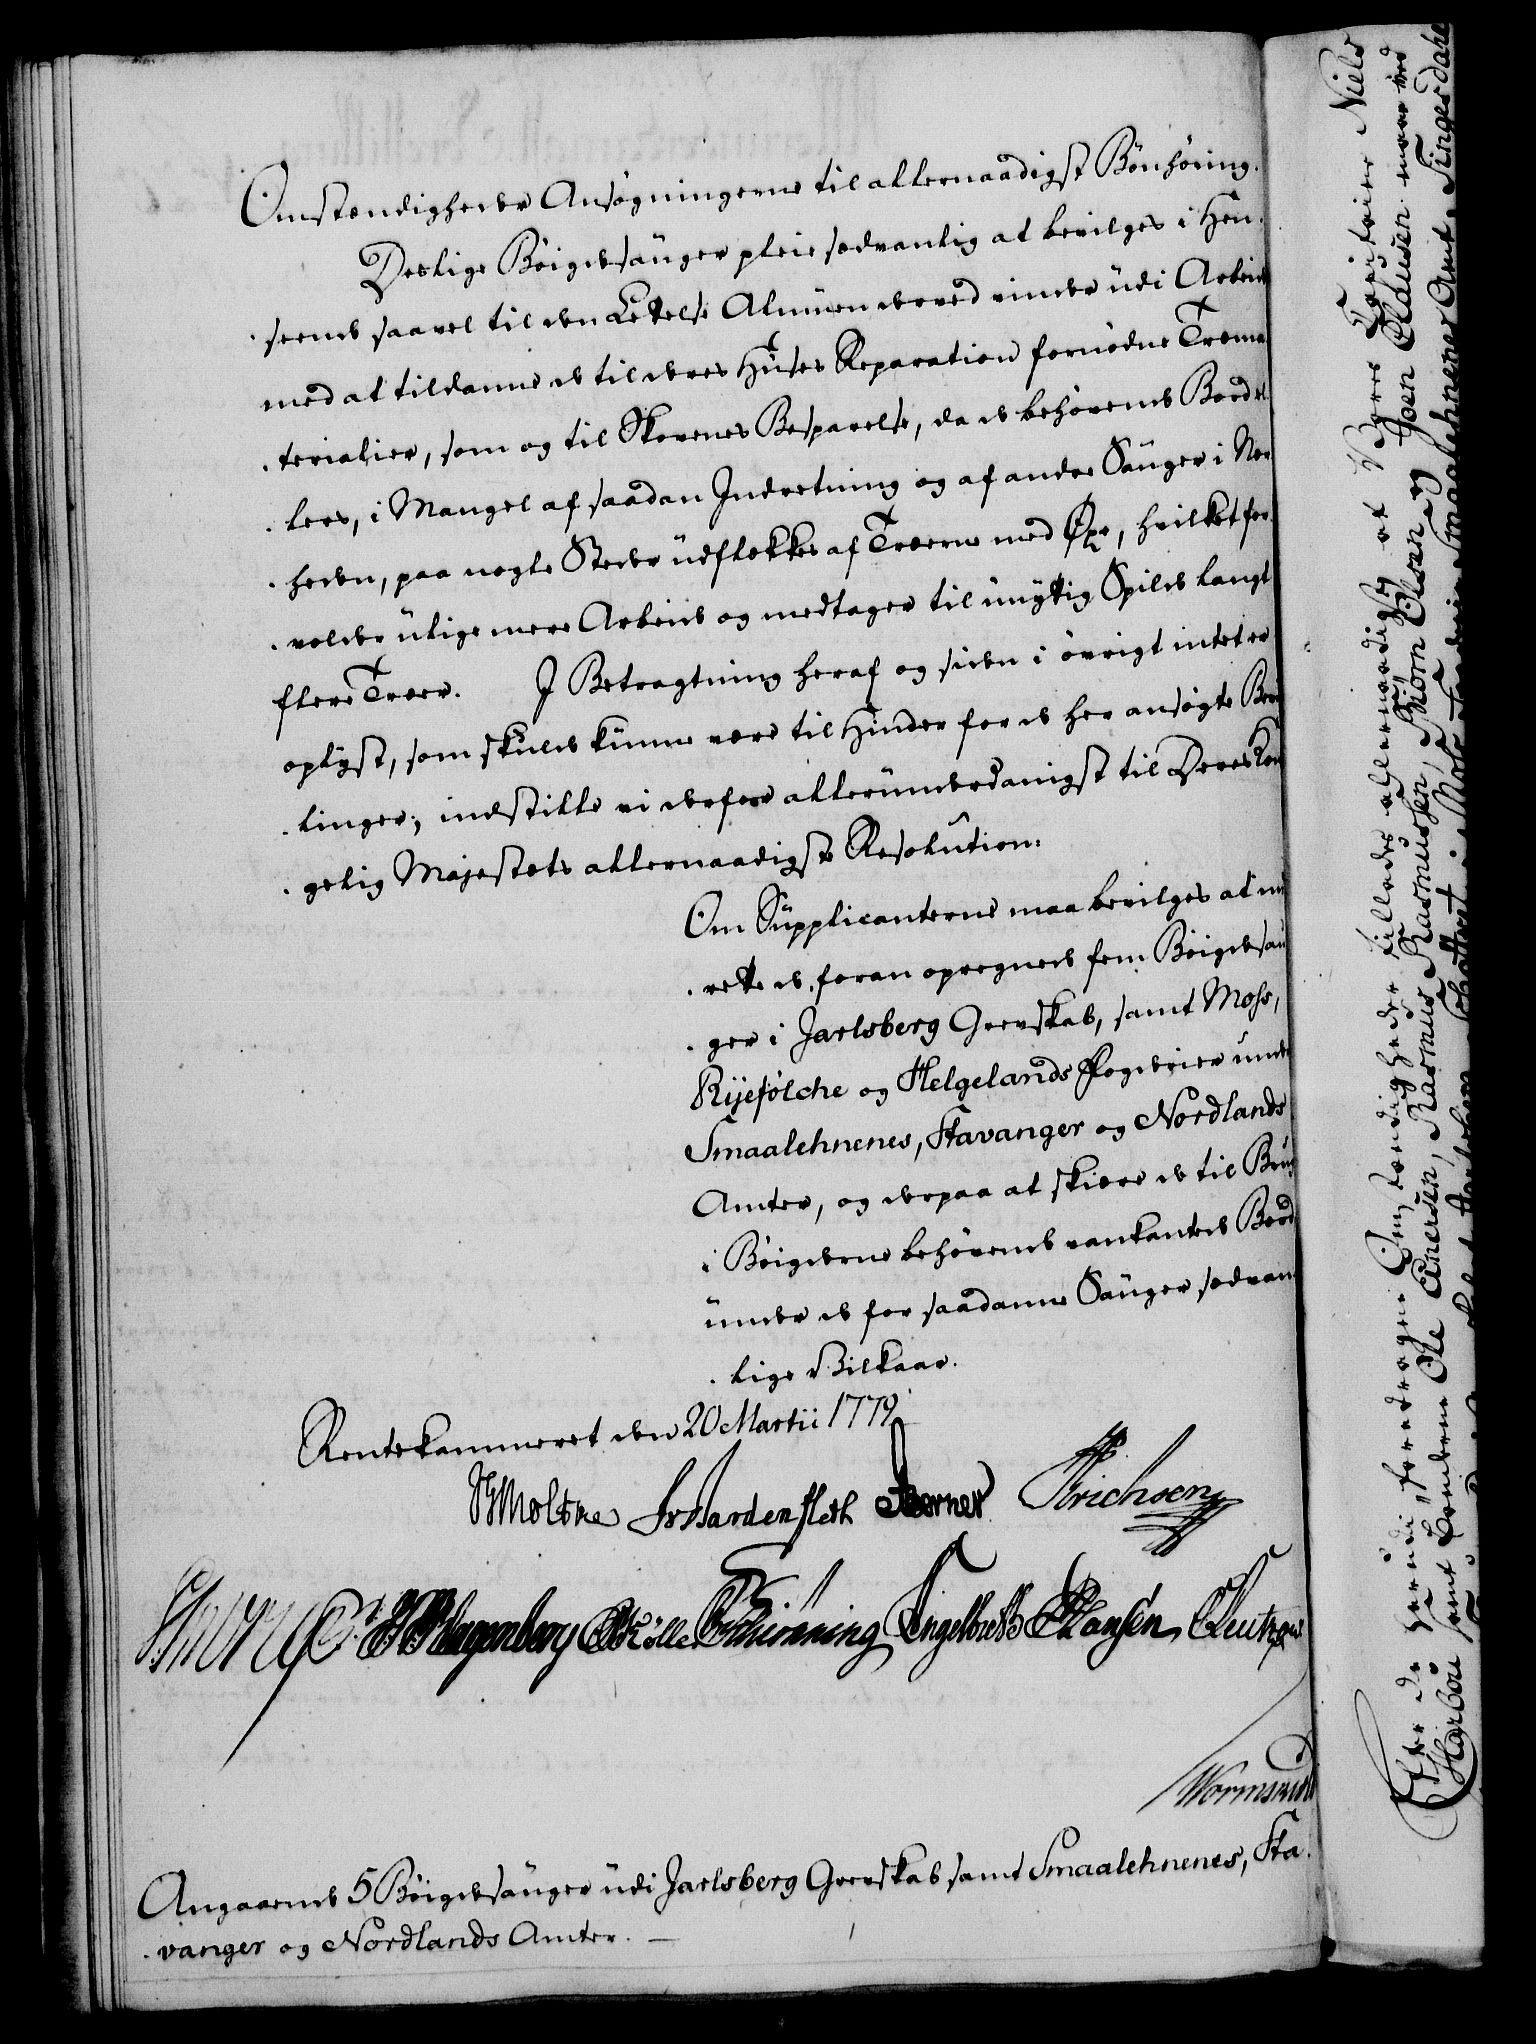 Omstændigheder Ansøgningerne til allernaadigst Bønhøring.
Deslige Böigdesauger pleie sædvanlig at bevilges i Hen-
seende saavel til den Lettelse Almuen derved vinder udi Arbeid
med at tildanne de til deres Huses Reparation fornødne Træma-
terialier, som og til Skovenes Besparelse, da de behøvende Bord el-
lers, i Mangel af saadan Indretning og af andre Sauger i Nær-
heden, paa nogle Steder udflækkes af Træerne med Øxe, hvilket for-
volder ulige mere Arbeide og medtager til unyttig Spilde langt
flere Træer. I Betragtning heraf og siden i øvrigt intet er
oplyst, som skulde kunne være til Hinder for de her ansøgte Bevil-
linger; indstille vi derfore allerunderdanigst til Deres Kon-
gelig Majestets allernaadigste Resolution:
Om Supplicanterne maa bevilges at ind-
rette de foran opregnede fem Böigdesau-
ger i Jarlsberg Grevskab, samt Moss,
Ryefölche og Helgelands Fogderier under
Smaalehnenes, Stavanger og Nordlands
Amter, og derpaa at skiære de til Brug
i Böigderne behøvende vankantede Bord
under de for saadanne Sauger sædvan-
lige Vilkaar.
Rentekammeret den 20 Martii 1779
Moltke Fr Hardenfleth Berner Erichsen
Klagenberg Schiönning Engelbreth Hansen
Wormskiold
Angaaende 5 Böigdesauger udi Jarlsberg Grevskab samt Smaalehnenes, Sta-
vanger og Nordlands Amter.
Efter de herudi foredragne Omstændigheder tillades allernaadigst at Niels
Harboe samt Bönderne Ole Enersen, Rasmus Rasmussen, Biörn Olsen og Joen Clausen maae ved